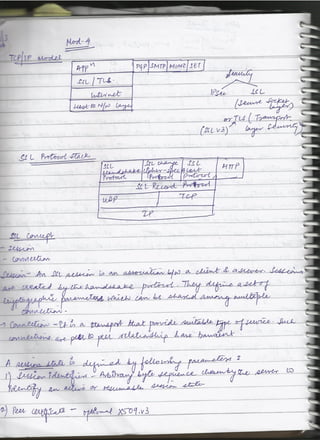 Mod-4
TCP/IP Model
APPⁿ
PGP | SMTP | MIME | SET
SSL / TLS
Internet
Host to N/w Layer
Security
IPSec
SSL
(Secure Socket
Layer)
or TLS ( Transport
(SSL v3) Layer Security
SSL Protocol Stack
SSL
Handshake
Protocol
SSL change
Cipher-spec
Protocol
SSL
Alert
Protocol
HTTP
SSL Record Protocol
UDP
TCP
IP
SSL Concept
- Session
- Connection
Session - An SSL session is an association b/w a client & a server. Sessions
are created by the handshake protocol. They define a set of
cryptographic parameters which can be shared among multiple
connection.
→ Connection - It is a transport that provide suitable type of service. Such
connections are peer to peer relationship
A session state is defined by following parameters :
1) Session Identifier - Arbitrary byte sequence chosen by the server to
identify an active or resumable session state
2) Peer certificate - optional X509.v3